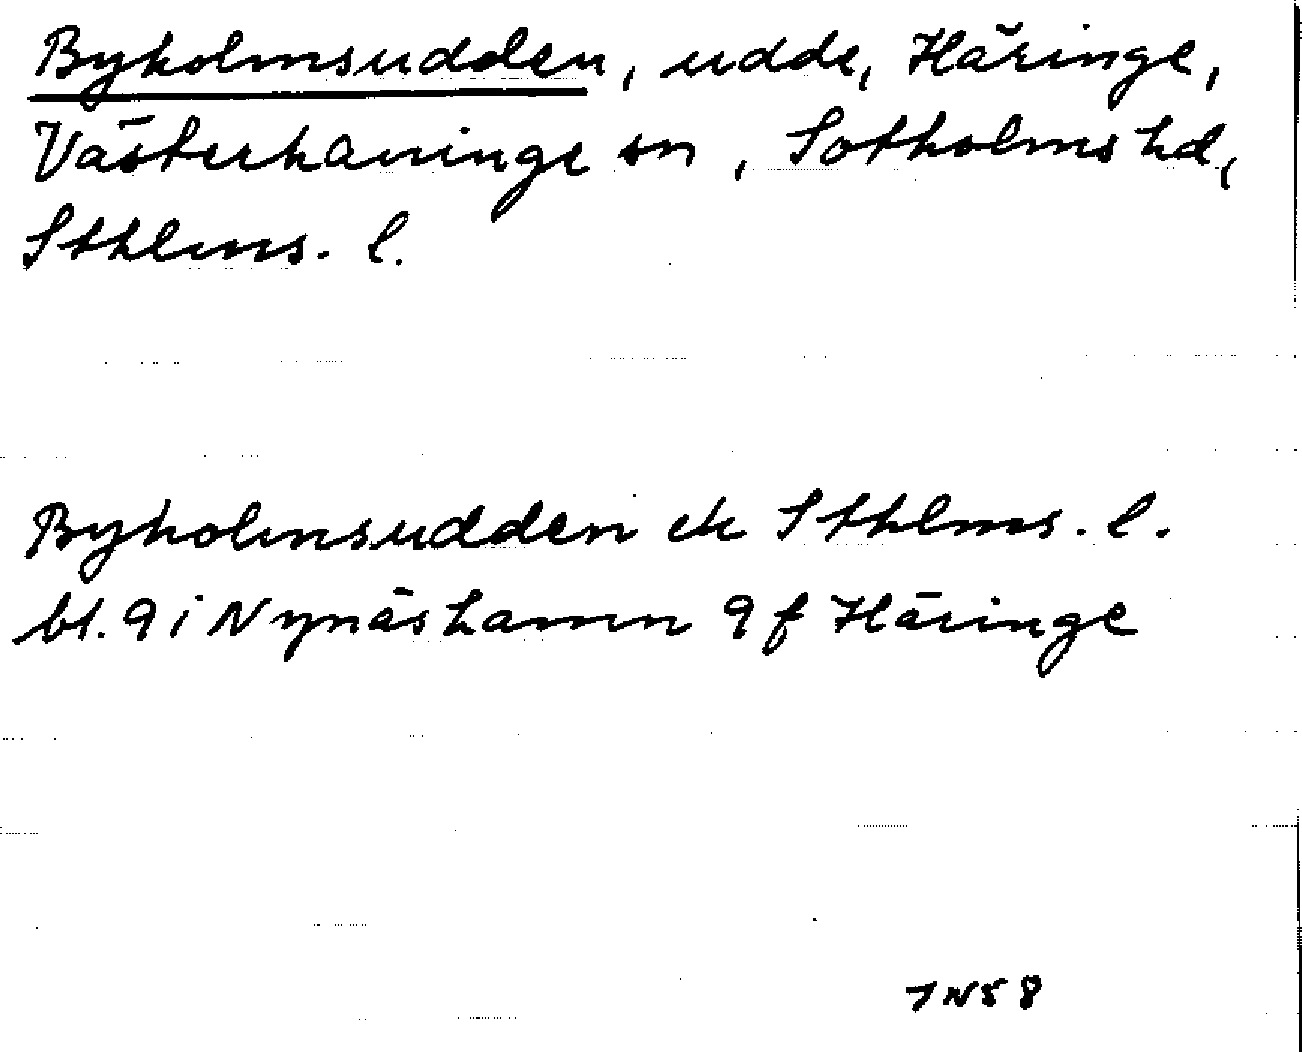 Byholmsudden, udde, Häringe,
Västerhaninge sn, Sotholms hd,
Sthlms. l.
Byholmsudden ek Sthlms. l.
bl. 9 i Nynäshamn 9 f Häringe
7N58